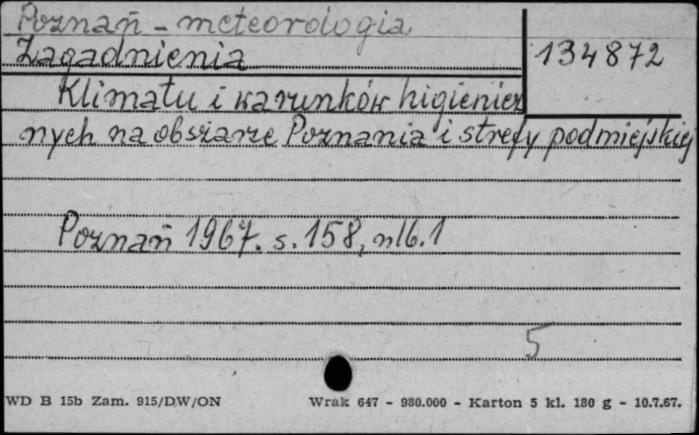 Poznań - meteorologia
Zagadnienia
134872
Klimatu i warunków higienicz
nych na obszarze Poznania i strefy podmiejskiej
Poznań 1967. s. 158, nlb. 1
5
WD B 15b Zam. 915/DW/ON
Wrak 647 - 980.000 - Karton 5 kl. 180 g - 10.7.67.